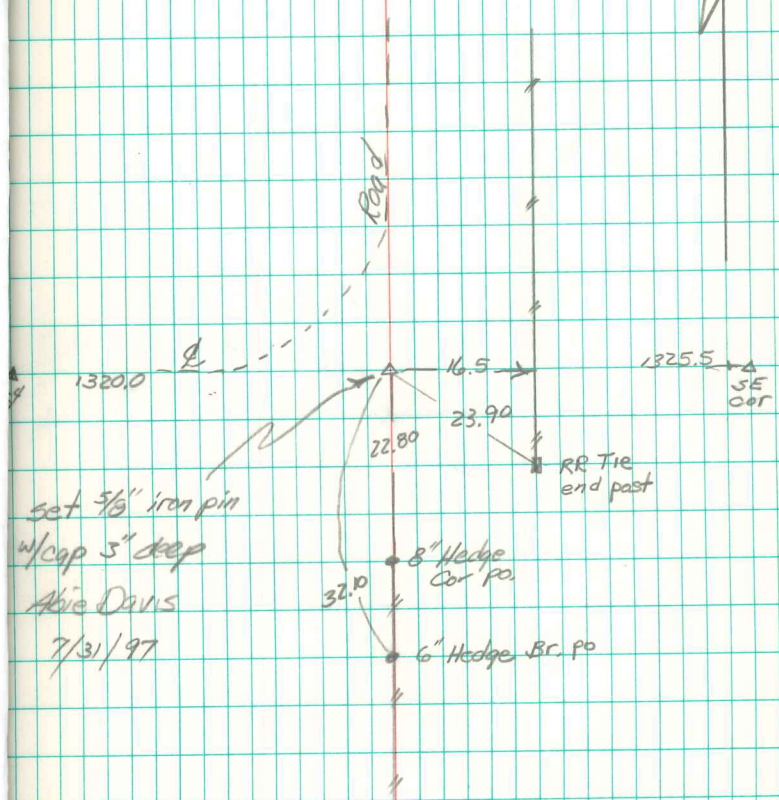 Road
℄
1320.0
16.5
1325.5
SE
Cor
23.90
22.80
RR Tie
end post
set 5/8" iron pin
w/cap 3" deep
Abie Davis
7/31/97
8" Hedge
Cor po.
32.10
6" Hedge Br. po